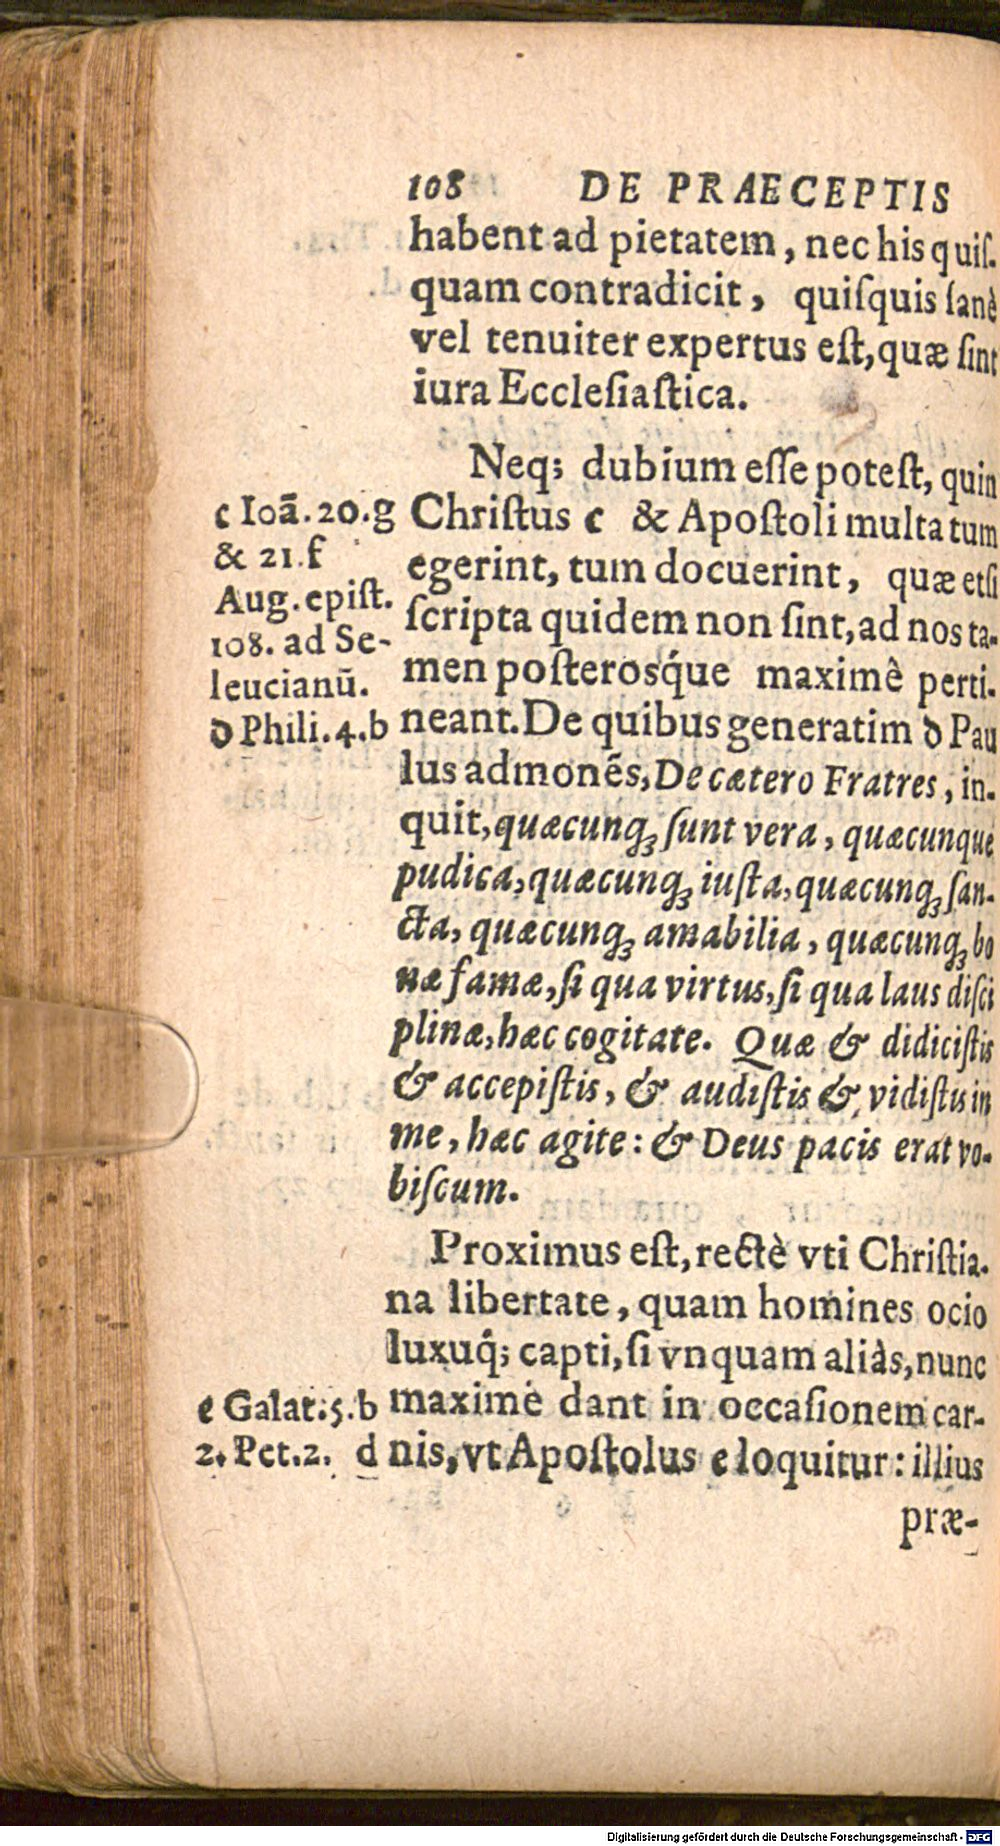 108 DE PRAECEPTIS
habent ad pietatem, nec his quiſ-
quam contradicit, quiſquis ſanè
vel tenuiter expertus eſt, quæ ſint
iura Eccleſiaſtica.
Neq; dubium eſſe poteſt, quin
Chriſtus c & Apoſtoli multa tum
egerint, tum docuerint, quæ etſi
ſcripta quidem non ſint, ad nos ta-
men poſterosq́ue maximè perti-
neant. De quibus generatim d Pau
lus admonẽs, De cætero Fratres, in-
quit, quæcunq; ſunt vera, quæcunque
pudica, quæcunq; iuſta, quæcunq; ſan-
cta, quæcunq; amabilia, quæcunq; bo
næ famæ, ſi qua virtus, ſi qua laus diſci
plinæ, hæc cogitate. Quæ & didiciſtis
& accepiſtis, & audiſtis & vidiſtis in
me, hæc agite: & Deus pacis erat vo-
biſcum.
Proximus eſt, rectè vti Chriſtia-
na libertate, quam homines ocio
luxuq́; capti, ſi vnquam aliàs, nunc
maximè dant in occaſionem car-
nis, vt Apoſtolus e loquitur: illius
præ-
c Ioã. 20. g
& 21. f
Aug. epiſt.
108. ad Se-
leucianũ.
d Phili. 4. b
e Galat. 5. b
2. Pet. 2. d
Digitalisierung gefördert durch die Deutsche Forschungsgemeinschaft - DFG